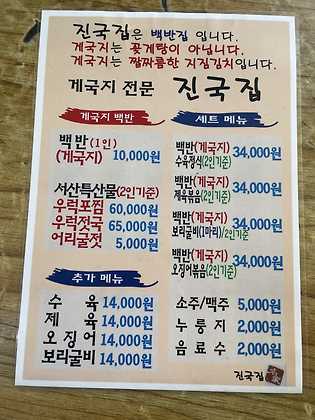 진국집은 백반집 입니다.
게국지는 꽃게탕이 아닙니다.
게국지는 짭짜름한 지짐김치입니다.
게국지 전문 진국집
게국지 백반
백반(1인)
(게국지) 10,000원
서산특산물(2인기준)
우럭포찜 60,000원
우럭젓국 65,000원
어리굴젓 5,000원
세트 메뉴
백반(게국지) 34,000원
수육정식(2인기준)
백반(게국지) 34,000원
제육볶음(2인기준)
백반(게국지) 34,000원
보리굴비(1마리)/2인기준
백반(게국지) 34,000원
오징어볶음(2인기준)
추가 메뉴
수 육 14,000원
제 육 14,000원
오 징 어 14,000원
보리굴비 14,000원
소주/맥주 5,000원
누 룽 지 2,000원
음 료 수 2,000원
진국집